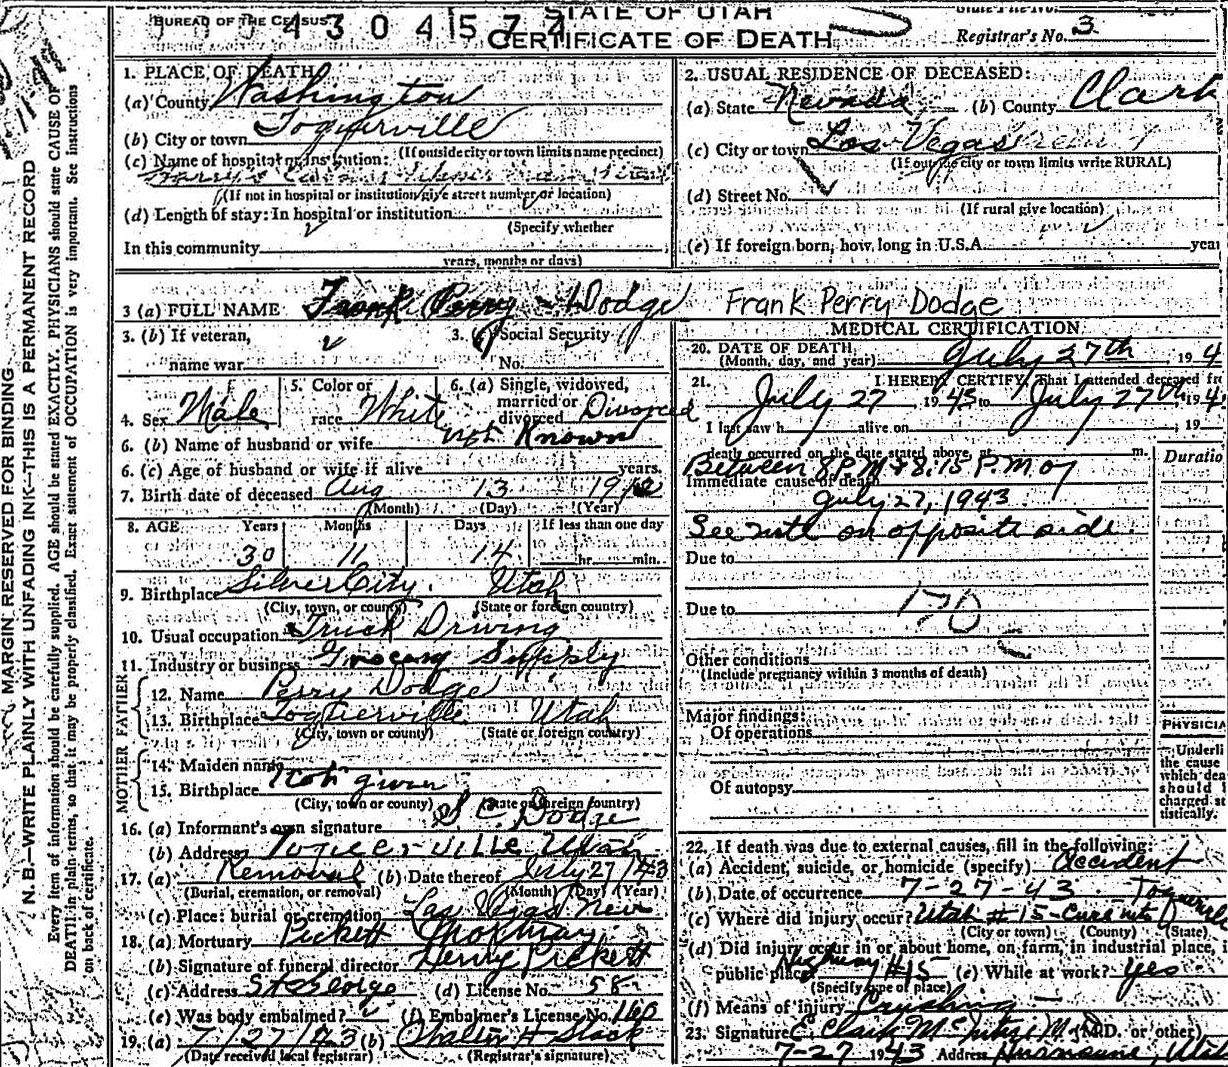 BUREAU OF THE CENSUS
4304574
STATE OF UTAH
CERTIFICATE OF DEATH
Registrar's No. 3
MARGIN RESERVED FOR BINDING.
N. B.—WRITE PLAINLY WITH UNFADING INK—THIS IS A PERMANENT RECORD
Every item of information should be carefully supplied. AGE should be stated EXACTLY. PHYSICIANS should state CAUSE OF
DEATH in plain terms, so that it may be properly classified. Exact statement of OCCUPATION is very important. See instructions
on back of certificate.
1. PLACE OF DEATH
(a) County Washington
(b) City or town Toquerville
(If outside city or town limits name precinct)
(c) Name of hospital or institution:
(If not in hospital or institution give street number or location)
(d) Length of stay: In hospital or institution
(Specify whether
In this community
years, months or days)
2. USUAL RESIDENCE OF DECEASED:
(a) State Nevada (b) County Clark
(c) City or town Los Vegas
(If outside city or town limits write RURAL)
(d) Street No.
(If rural give location)
(e) If foreign born, how long in U.S.A. year
3 (a) FULL NAME Frank Perry Dodge Frank Perry Dodge
3. (b) If veteran,
name war
3. (c) Social Security
No.
4. Sex Male
5. Color or
race White
6. (a) Single, widowed,
married or
divorced Divorced
6. (b) Name of husband or wife not Known
6. (c) Age of husband or wife if alive years.
7. Birth date of deceased Aug 13 1912
(Month) (Day) (Year)
8. AGE Years Months Days If less than one day
30 11 14 hr. min.
9. Birthplace Silver City. Utah
(City, town, or county) (State or foreign country)
10. Usual occupation Truck Driving
11. Industry or business Grocery Supply
FATHER
12. Name Perry Dodge
13. Birthplace Toquerville Utah
(City, town or county) (State or foreign country)
MOTHER
14. Maiden name
15. Birthplace Not given
(City, town or county) (State or foreign country)
16. (a) Informant's own signature S C Dodge
(b) Address Toquerville Utah
17. (a) Removal (b) Date thereof July 27/43
(Burial, cremation, or removal) (Month) (Day) (Year)
(c) Place: burial or cremation Las Vegas Nev
18. (a) Mortuary Pickett Mortuary
(b) Signature of funeral director Henry Pickett
(c) Address St George (d) License No. 58
(e) Was body embalmed? (f) Embalmer's License No. 160
19. (a) 7/27/43 (b) Walter H Slack
(Date received local registrar) (Registrar's signature)
MEDICAL CERTIFICATION
20. DATE OF DEATH July 27th, 194
(Month, day, and year)
21. I HEREBY CERTIFY, That I attended deceased fr
July 27 1943 to July 27th, 194
I last saw h alive on , 19
death occurred on the date stated above, at m.
Between 8 P.M & 8:15 P.M of
Immediate cause of death
July 27, 1943
See note on opposite side.
Duratio
Due to
Due to
170
Other conditions
(Include pregnancy within 3 months of death)
Major findings:
Of operations
Of autopsy
PHYSICIA
Underli
the cause
which dea
should
charged st
tistically.
22. If death was due to external causes, fill in the following:
(a) Accident, suicide, or homicide (specify) Accident
(b) Date of occurrence 7-27-43
(c) Where did injury occur? Utah #15 Toquerville
(City or town) (County) (State)
(d) Did injury occur in or about home, on farm, in industrial place, i
public place Highway #15 (e) While at work? Yes
(Specify type of place)
(f) Means of injury Crushing
23. Signature (M.D. or other)
7-27 1943 Address Hurricane, Utah